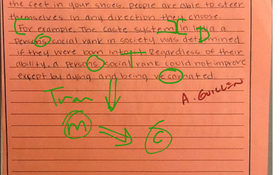 the feet in your shoes. People are able to steer
themselves in any direction they choose.
For example, The Caste system In India a
persons social rank in society was determined
if they were born Regardless of their
ability, a persons social rank could not improve
except by dying and being recarnated.
A. GUILLEN
M